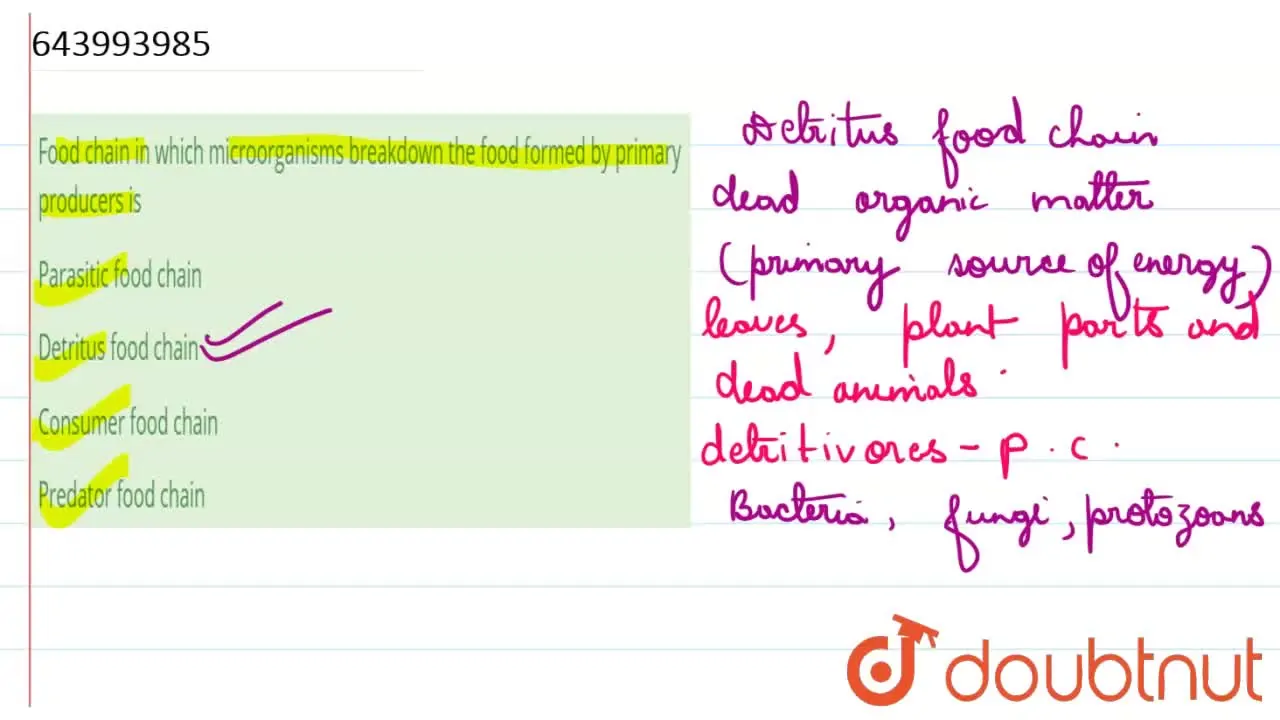 643993985
Food chain in which microorganisms breakdown the food formed by primary
producers is
Parasitic food chain
Detritus food chain
Consumer food chain
Predator food chain
Detritus food chain
dead organic matter
(primary source of energy)
leaves, plant parts and
dead animals.
detritivores - P.C.
Bacteria, fungi, protozoans
doubtnut